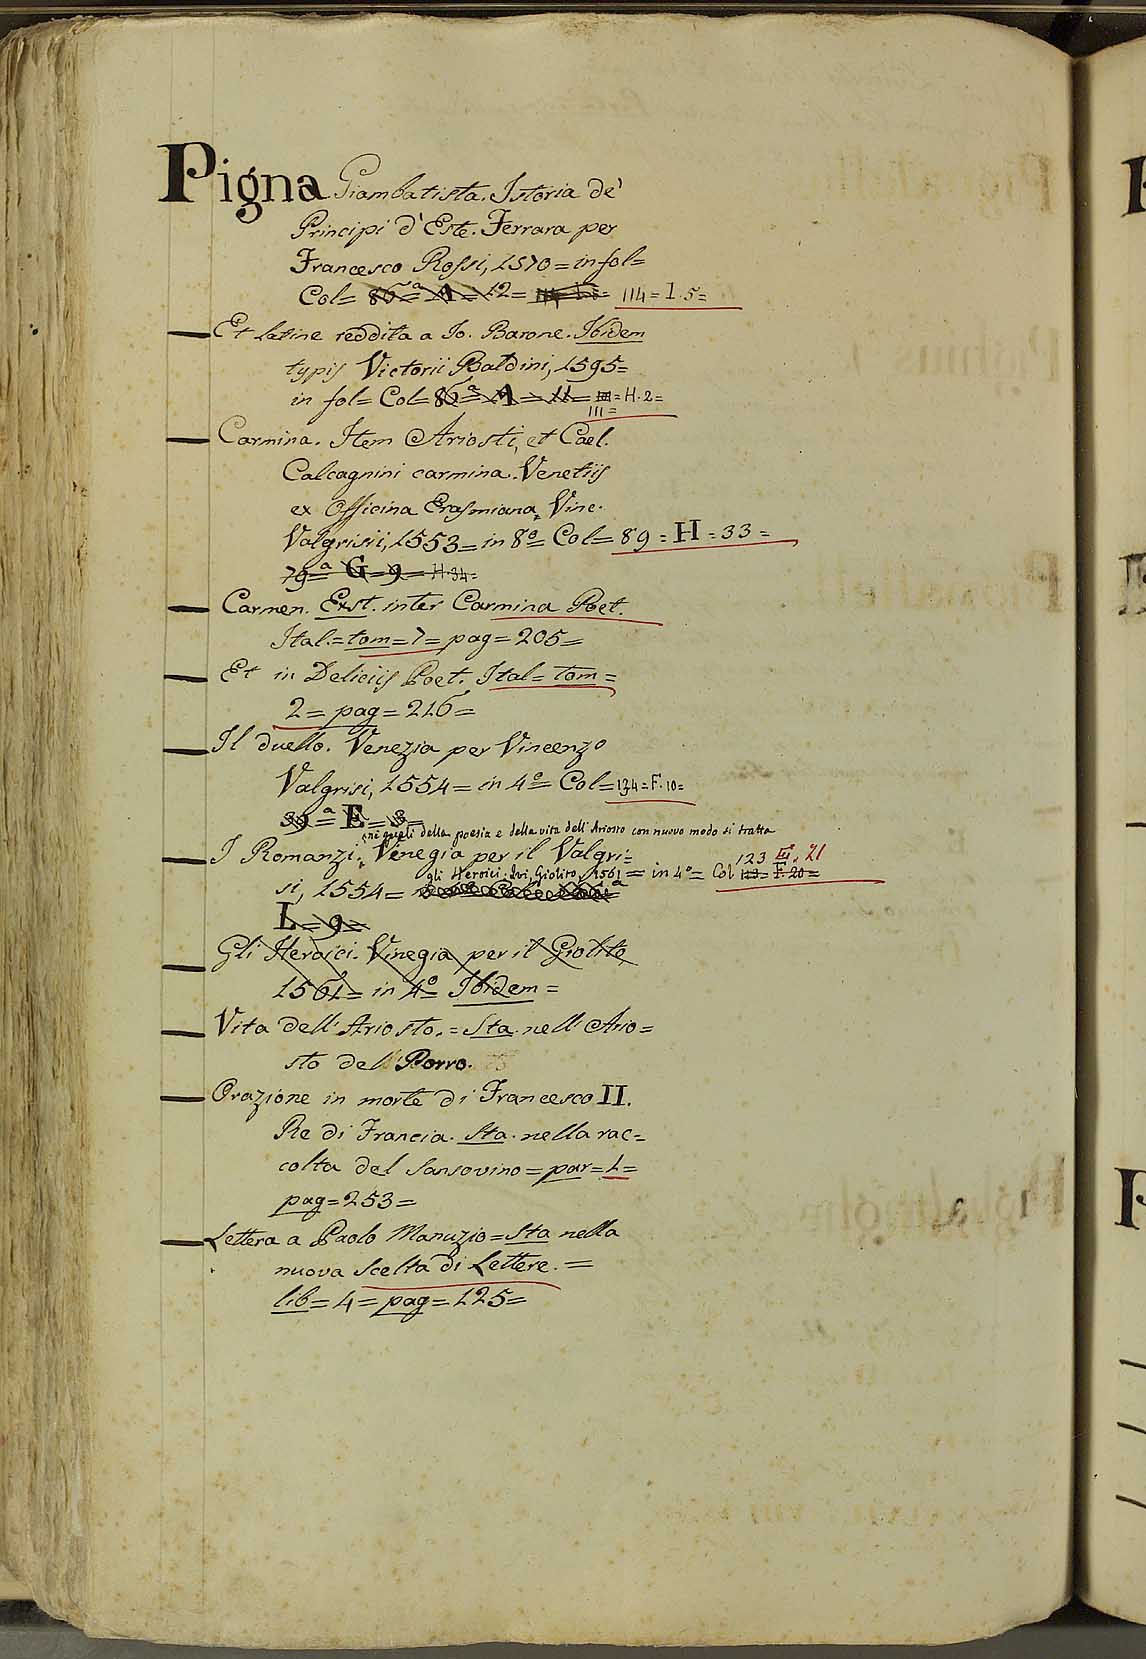 Pigna Giambatista. Istoria de'
Principi d'Este. Ferrara per
Francesco Rossi, 1570 = in fol =
Col = 86ª = A = 12 = 114 = I. 5 =
Et latine reddita a Io. Barone. Ibidem
typis Victorii Baldini, 1595 =
in fol = Col = 86ª = A = 11 = = H. 2 =
111 =
Carmina. Item Ariosti, et Cael.
Calcagnini carmina. Venetiis
ex Officina Erasmiana Vinc.
Valgrisii, 1553 = in 8º = Col = 89 = H = 33 =
79ª = G = 9 = H. 34 =
Carmen. Exst. inter Carmina Poet.
Ital. = tom = 7 = pag = 205 =
Et in Deliciis Poet. Ital = tom =
2 = pag = 216 =
Il duello. Venezia per Vincenzo
Valgrisi, 1554 = in 4º = Col = 134 = F. 10 =
39ª = E = 3 =
ne quali della poesia e della vita dell'Ariosto con nuovo modo si tratta
I Romanzi. Vinegia per il Valgri =
123 III. 21
gli Heroici. Ivi, Giolito, 1561 = in 4º = Col 113 = F 20 =
si, 1554 =
L = 9 =
Gli Heroici. Vinegia per il Giolito,
1561 = in 4º = Ibidem =
Vita dell'Ariosto. = Sta nell'Ario =
sto del Porro.
Orazione in morte di Francesco II.
Re di Francia. Sta nella rac =
colta del Sansovino = par = 1 =
pag = 253 =
Lettera a Paolo Manuzio = Sta nella
nuova Scelta di Lettere. =
lib = 4 = pag = 125 =